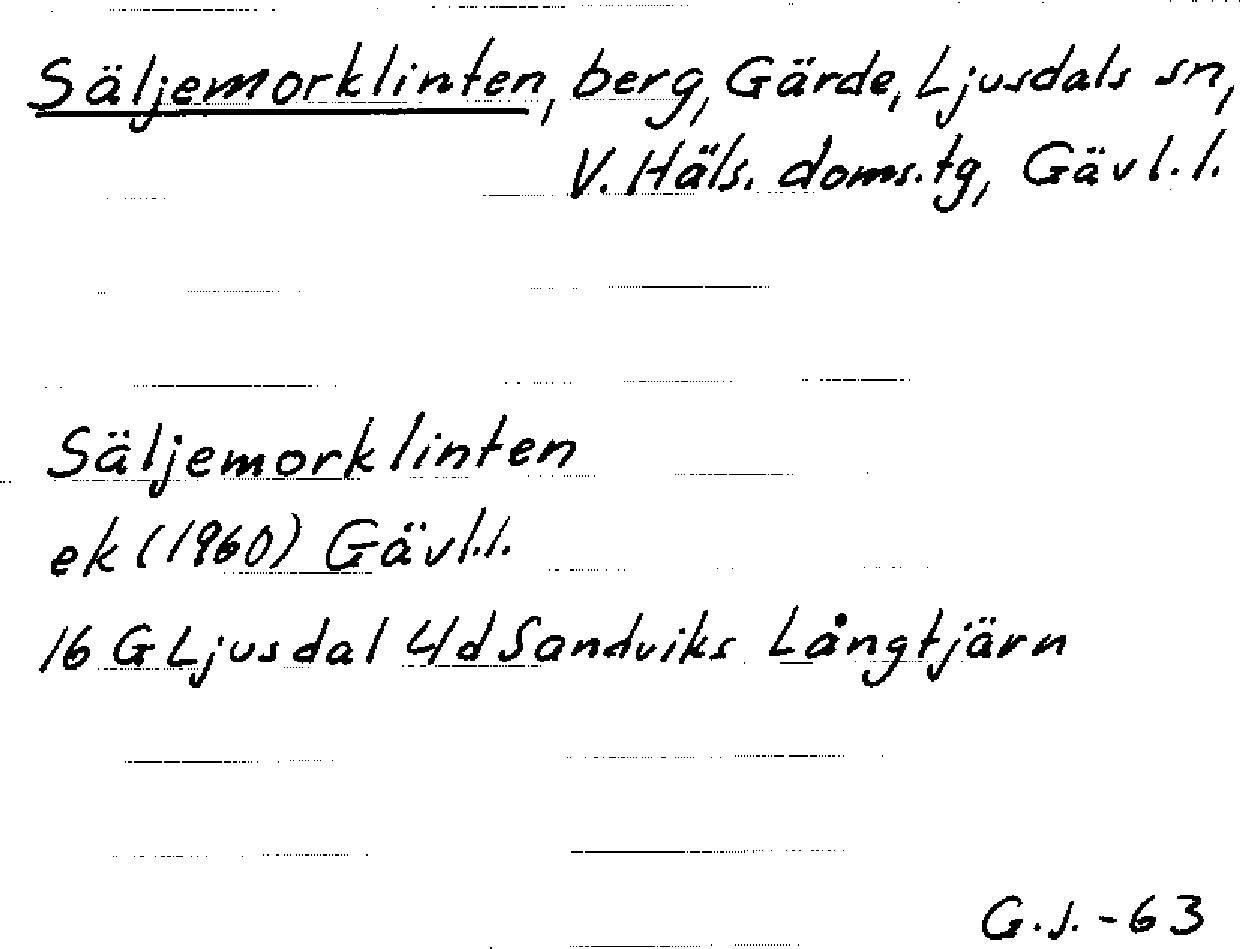 Säljemorklinten, berg, Gärde, Ljusdals sn,
V. Häls. doms.tg, Gävl.l.
Säljemorklinten
ek (1960) Gävl.l.
16 G Ljusdal 4/d Sandviks Långtjärn
G.J. -63